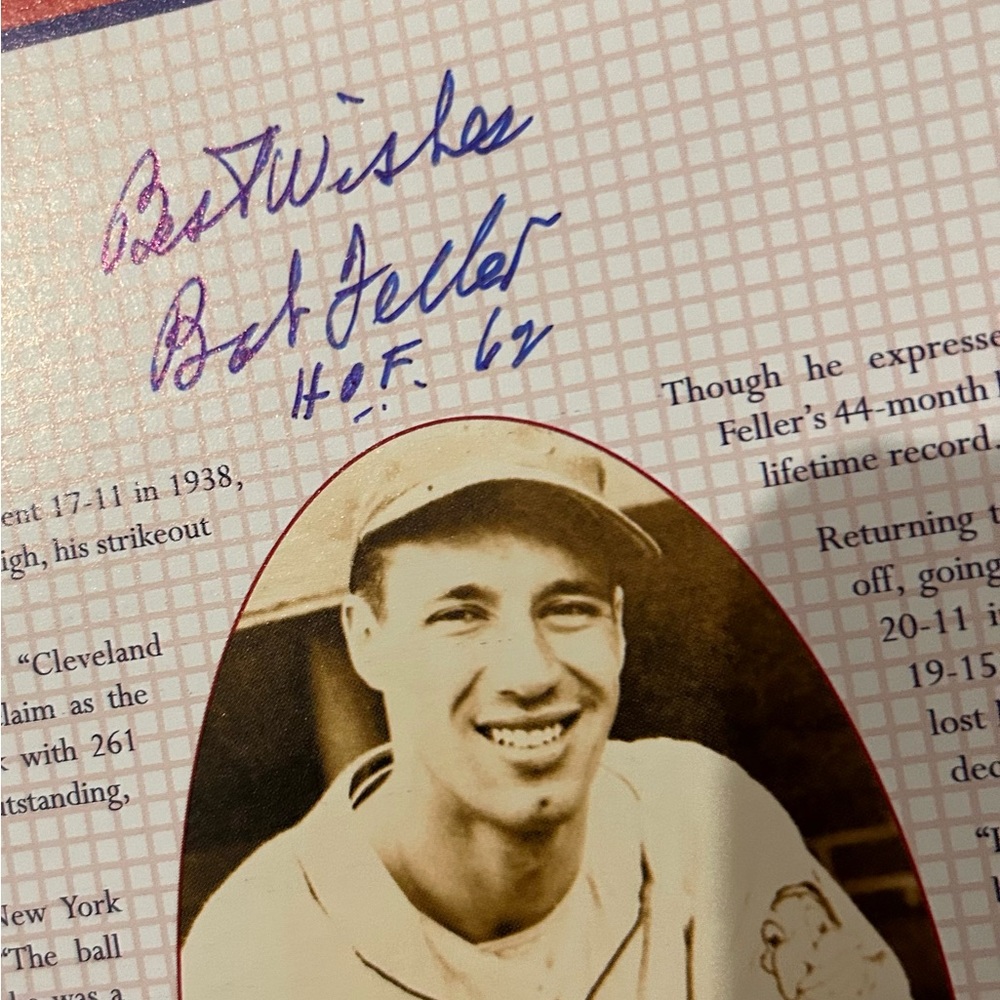 Best Wishes
Bob Feller
H.O.F. 62
Though he expresse
Feller's 44-month
lifetime record.
ent 17-11 in 1938,
igh, his strikeout
Returning t
off, going
20-11 i
19-15
lost
dec
"Cleveland
laim as the
with 261
utstanding,
New York
"The ball
was a